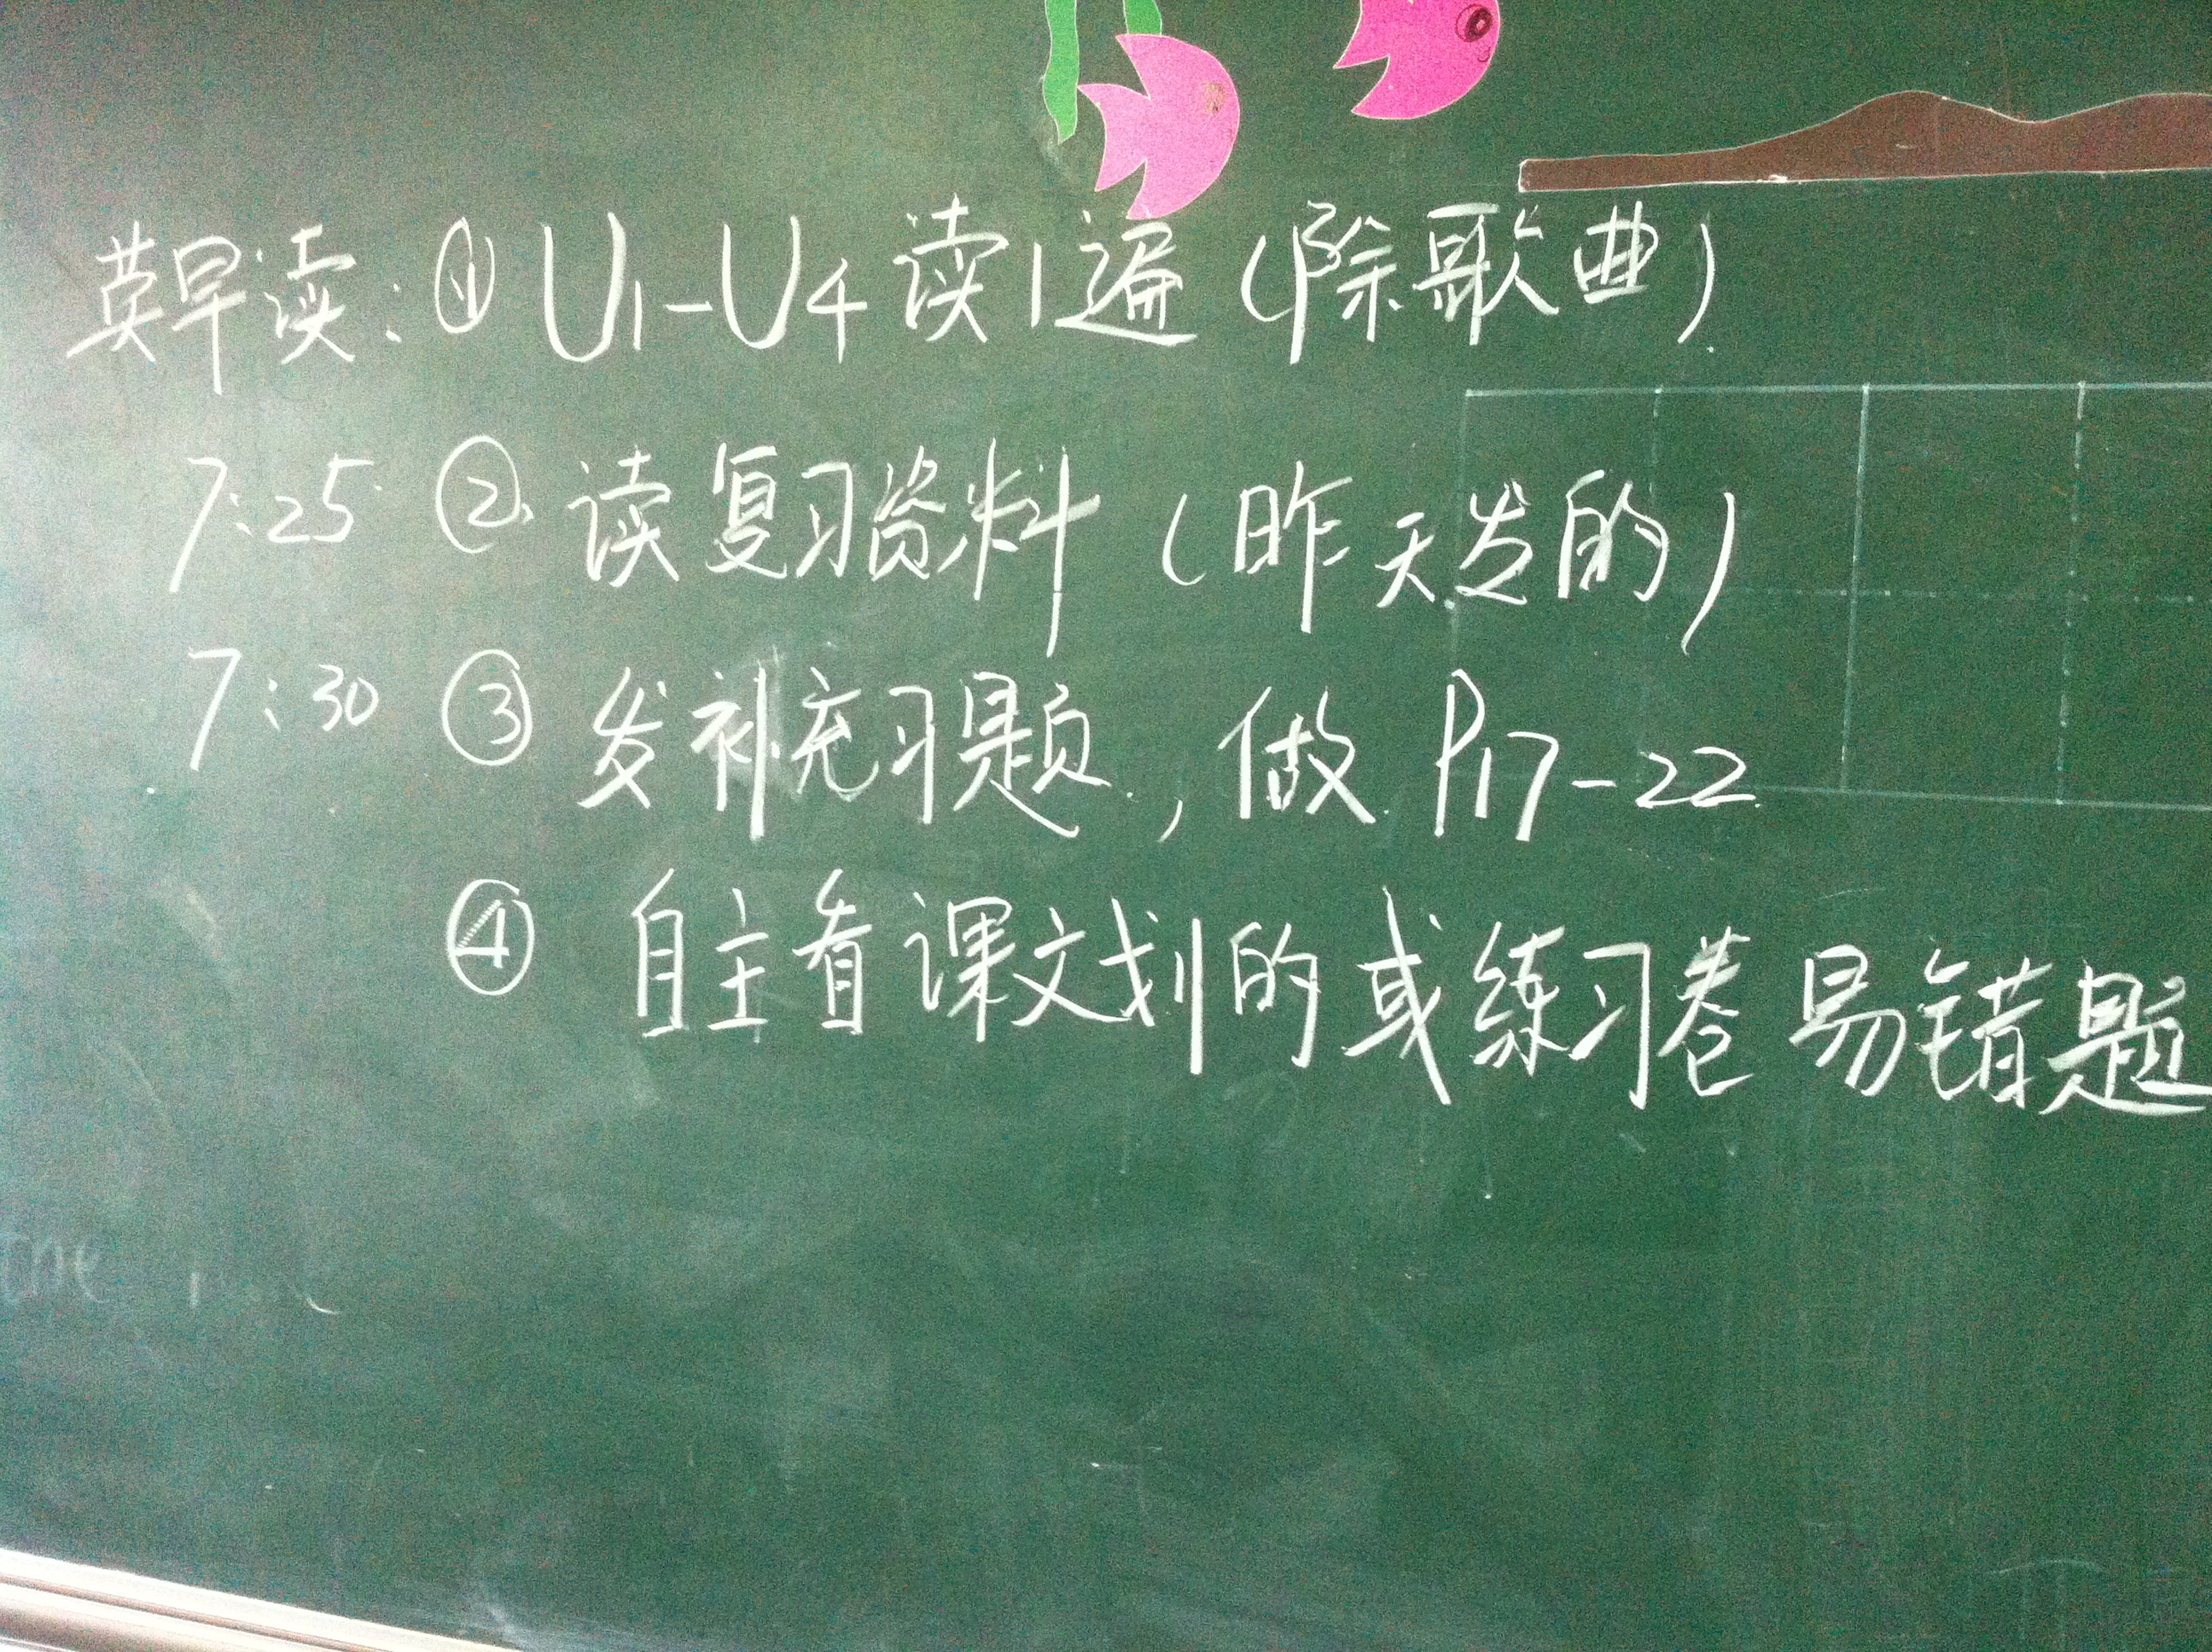 英早读：① U1-U4读1遍（除歌曲）.
7:25 ②. 读复习资料（昨天发的）
7:30 ③ 发补充习题，做 P17-22.
④ 自主看课文划的或练习卷易错题
the